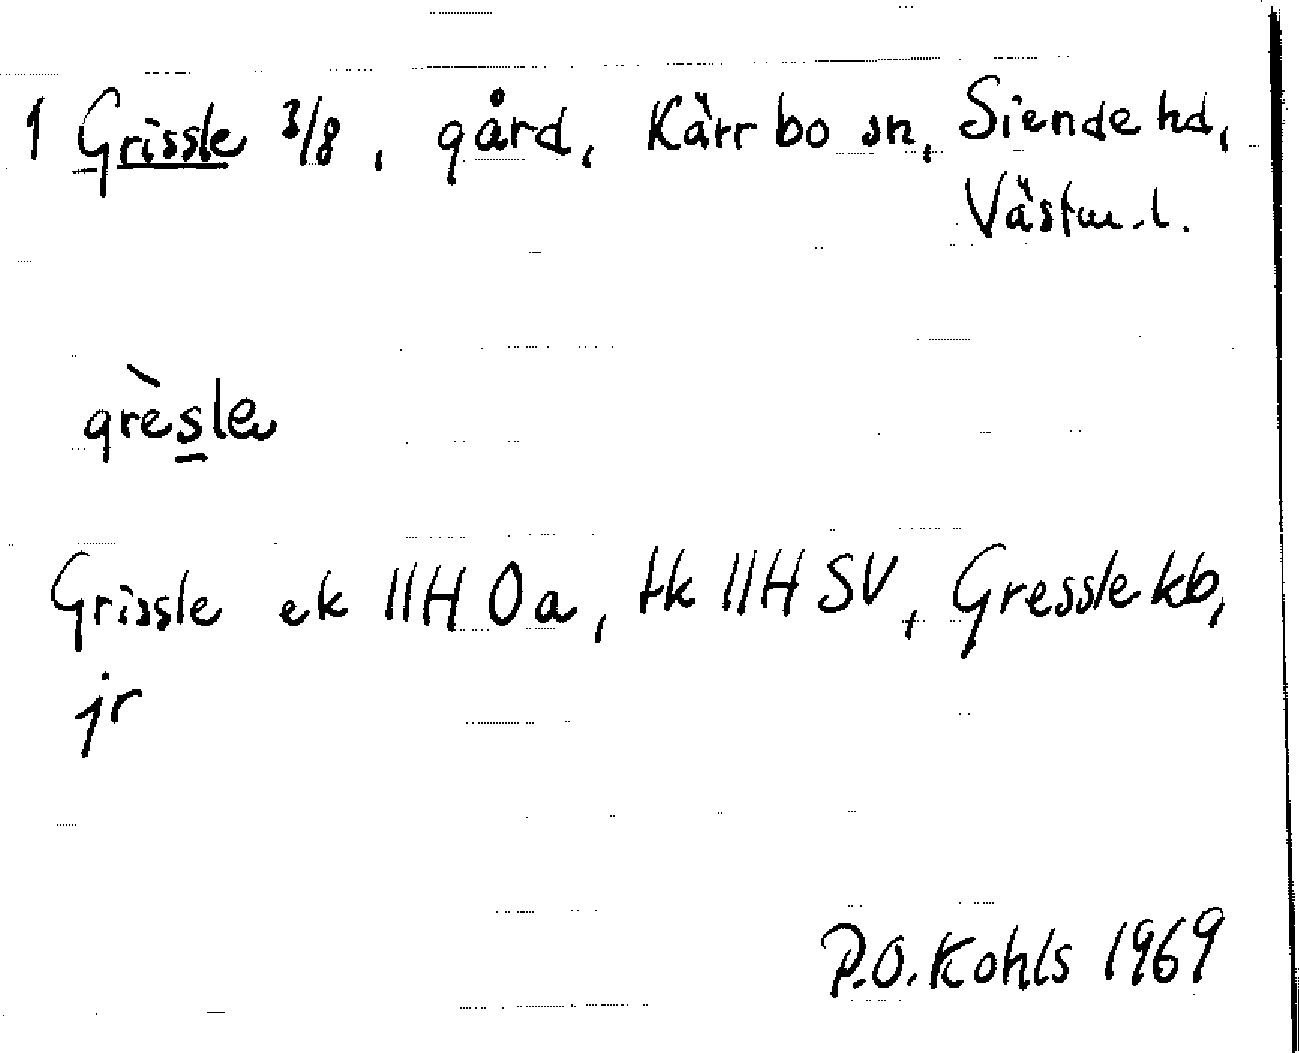 1 Grissle 3/8, gård, Kärrbo sn, Siende hd,
Västm.l.
grèsle
Grissle ek 11H 0a, tk 11H SV, Gressle kb,
jr
P.O. Kohls 1969